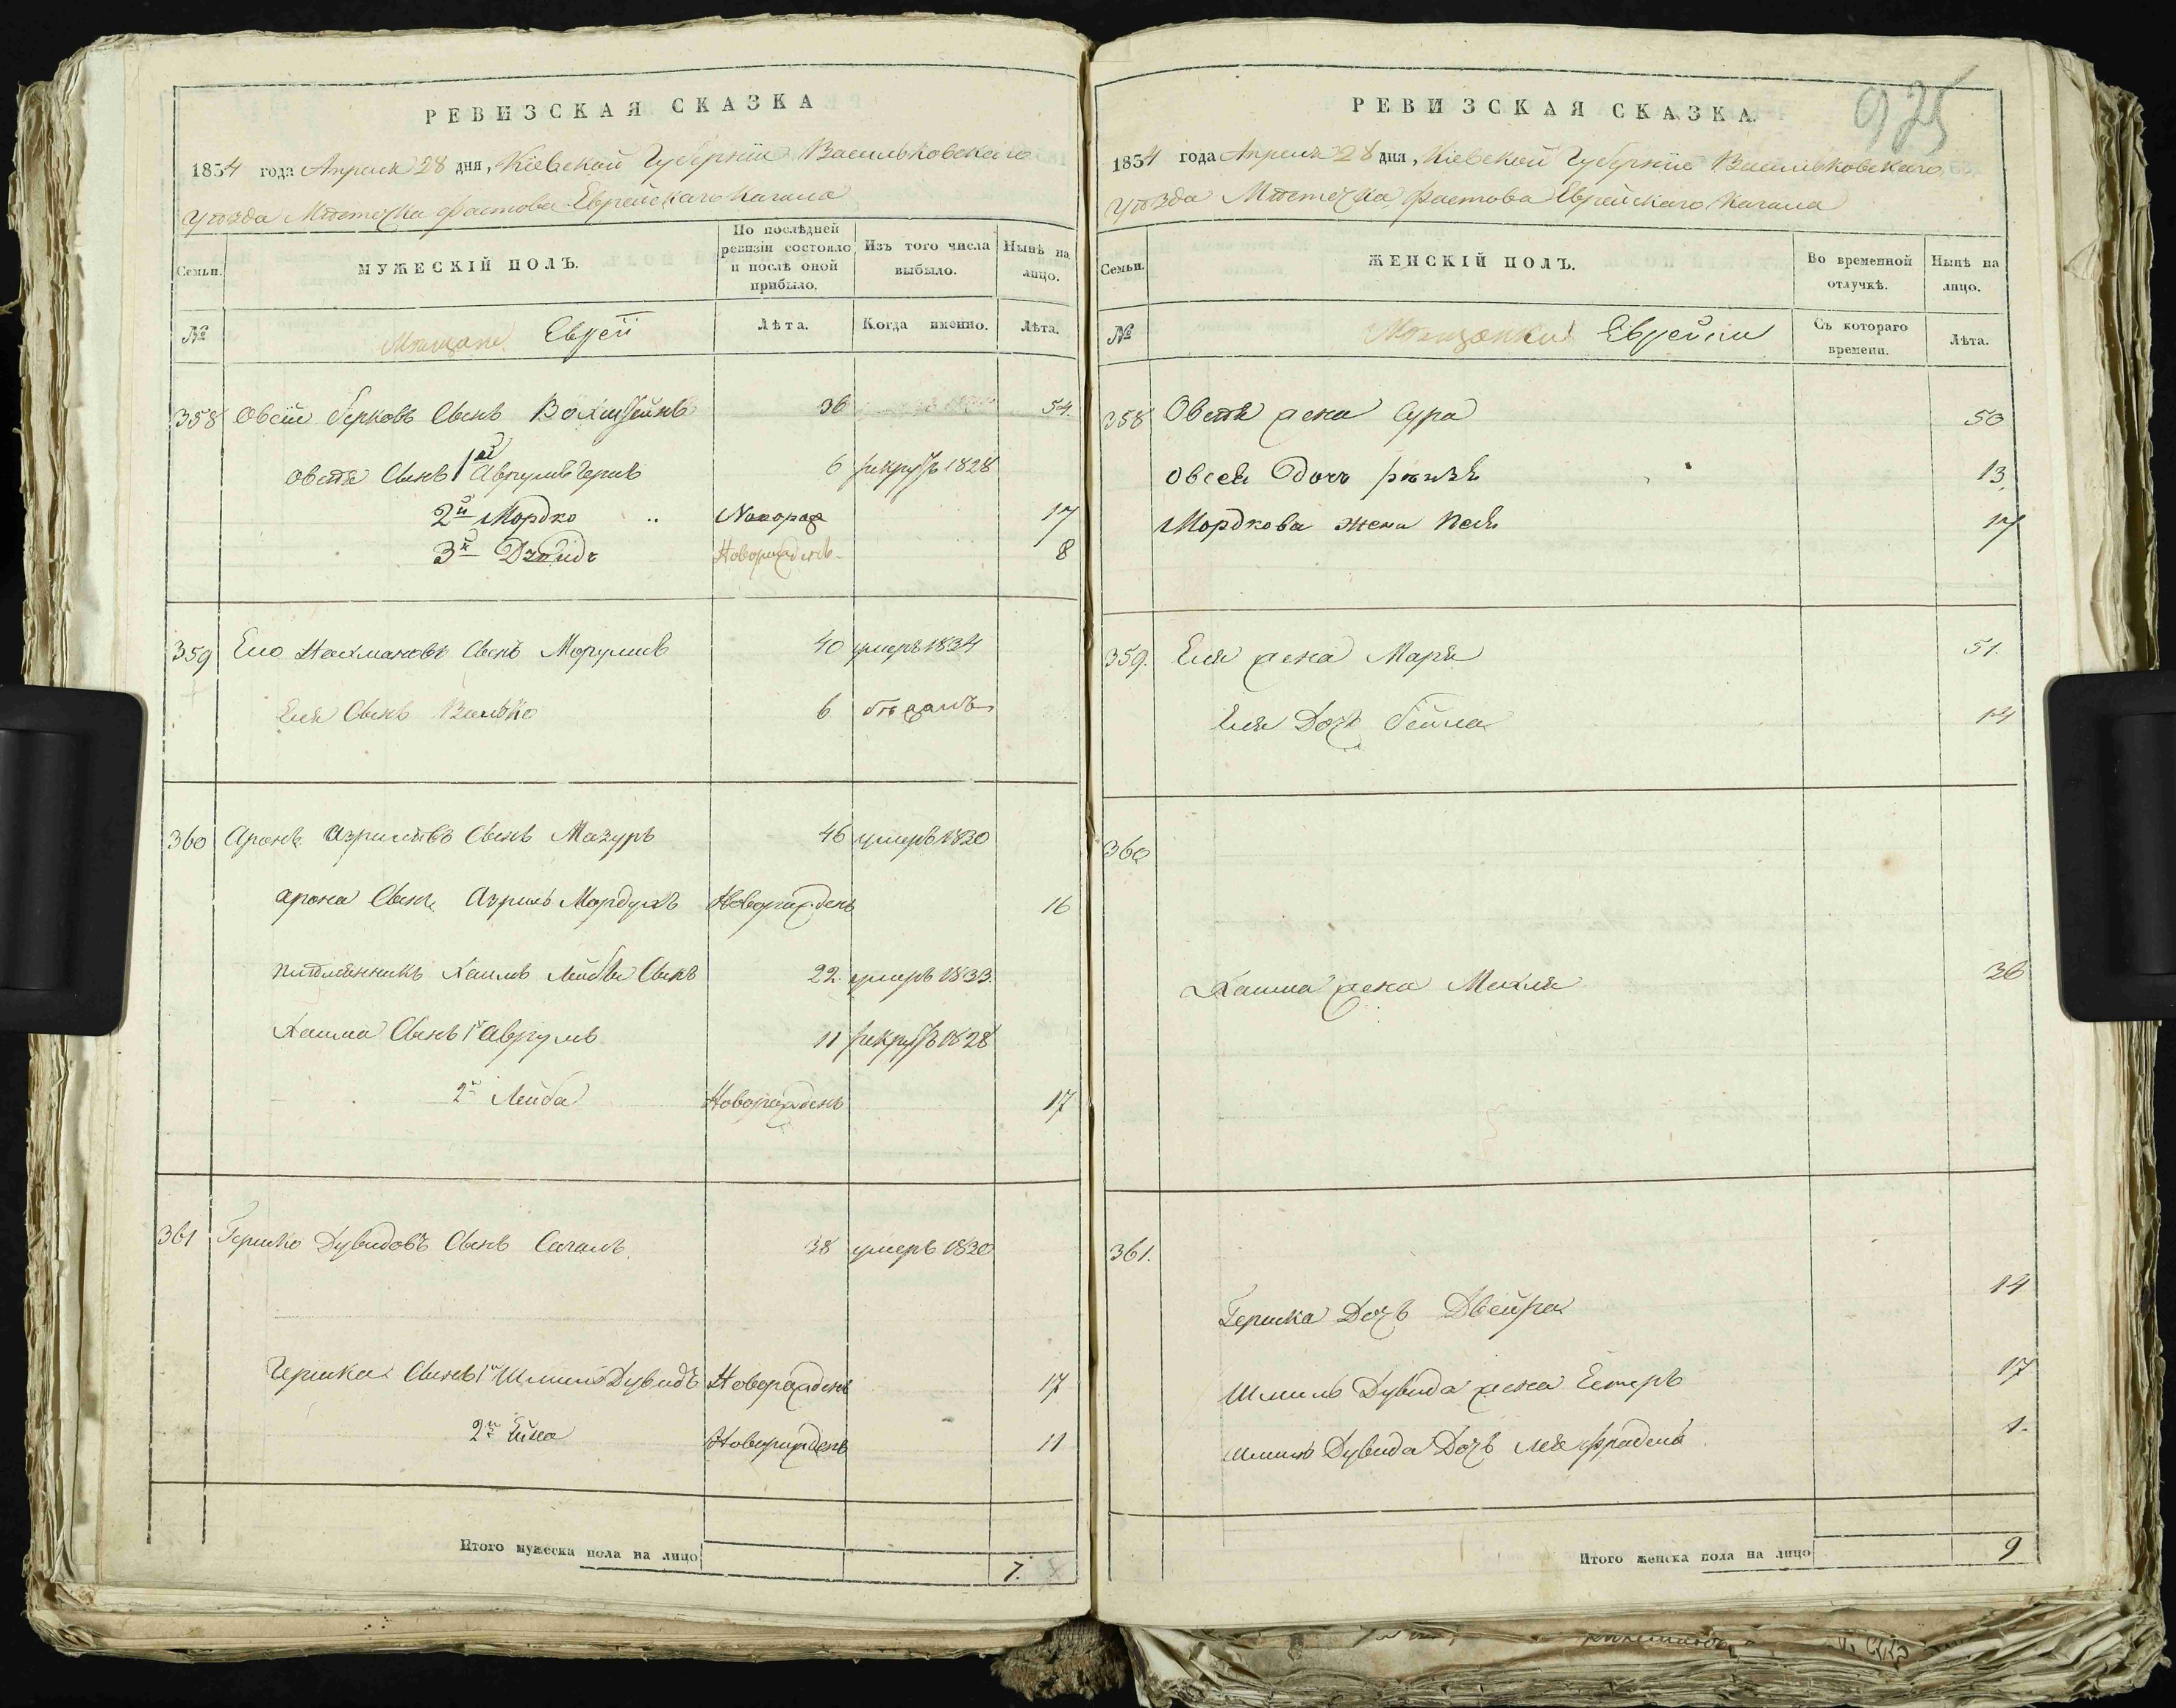 РЕВИЗСКАЯ СКАЗКА
1834 года Апреля 28 дня, Кіевской Губерніи Васильковскаго
уѣзда Мѣстечка Фастова Еврейскаго Кагала
Семьи.
МУЖЕСКІЙ ПОЛЪ.
По послѣдней ревизіи состояло и послѣ оной прибыло.
Изъ того числа выбыло.
Нынѣ на лицо.
№
Мѣщане Евреи
Лѣта.
Когда именно.
Лѣта.
358 Овсій Берковъ Сынъ 36 54.
Овсѣя Сынъ 1й Аврумъ 6 рекрутъ 1828
2й Мордко 17
3й Новорожденъ 8
359 Елю Нахмановъ Сынъ 40 умеръ 1834
Еля Сынъ Волько 6
360 Аронъ Азрилевъ Сынъ Мазуръ 46 умеръ 1830
Арона Сынъ Азриль Мордухъ Новорожденъ 16
племянникъ Хаимъ Лейбы Сынъ 22. умеръ 1833.
Хаима Сынъ 1й Аврумъ 11 рекрутъ 1828
2й Лейба Новорожденъ 17
361 Гершко Дувидовъ Сынъ Сагалъ 38 умеръ 1830
Гершка Сынъ 1й Шмиль Дувидъ Новорожденъ 17
2й Новорожденъ 11
Итого мужеска пола на лицо 7.
925
РЕВИЗСКАЯ СКАЗКА.
1834 года Апреля 28 дня, Кіевской Губерніи Васильковскаго
уѣзда Мѣстечка Фастова Еврейскаго Кагала
Семьи.
ЖЕНСКІЙ ПОЛЪ.
Во временной отлучкѣ.
Нынѣ на лицо.
№
Мѣщанки Еврейки
Съ котораго времени.
Лѣта.
358 Овсѣя жена Сура 50
Овсея Дочь 13.
Мордкова жена Песя 17
359. Еля жена Маря 51.
Еля Дочь Бейла 14
360
Хаима жена Махля 36
361.
Гершка Дочь Двейра 14
Шмиль Дувида жена Естеръ 17
Шмиль Дувида Дочь Лея Фрадель 1.
Итого женска пола на лицо 9